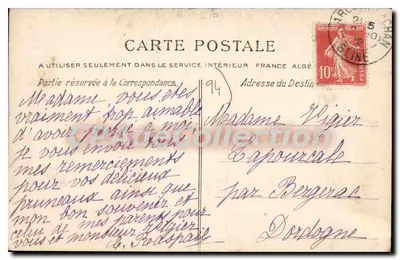 CARTE POSTALE
A UTILISER SEULEMENT DANS LE SERVICE INTÉRIEUR FRANCE ALGÉ
Partie réservée à la Correspondance
Adresse du Destin
94
10c
SEINE
Madame, vous êtes
vraiment trop aimable
d'avoir pensé à moi,
je vous envoie tous
mes remerciements
pour vos délicieux
pruneaux ainsi que
mon bon souvenir et
celui de mes parents pour
vous et monsieur Vigier
Madame Vigier
par Bergerac
Dordogne